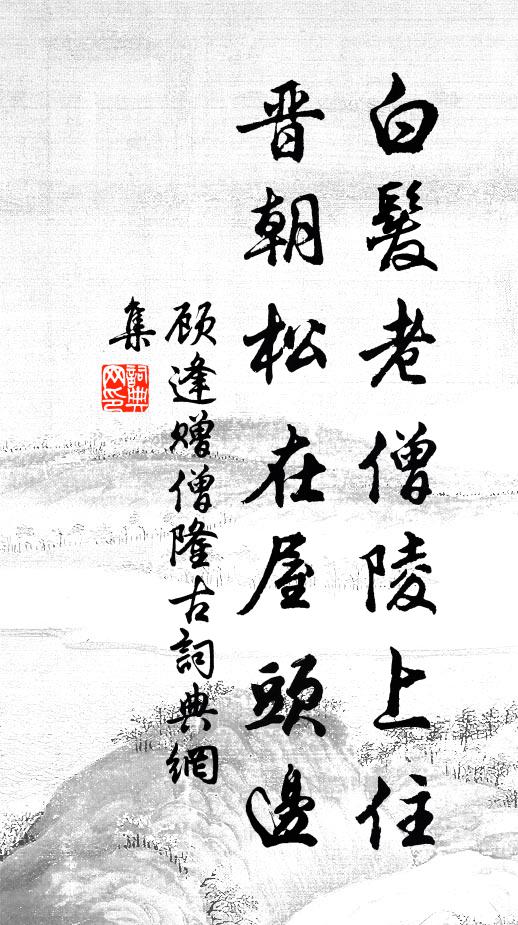 白髮老僧陵上住
晋朝松在屋頭邊
顾逢赠僧隆古詞典網
集
詞典
网印